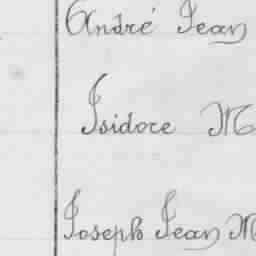 André Jean
Isidore M
Joseph Jean M